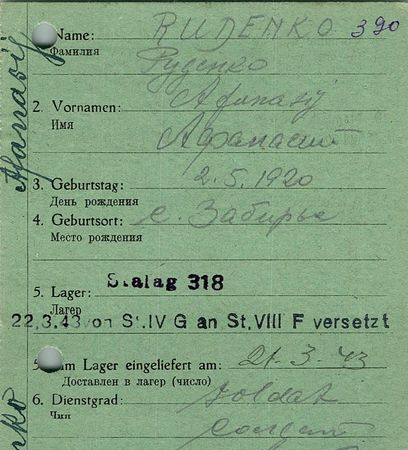 Name: RUDENKO 390
Фамилия Руденко
2. Vornamen: Afanasij
Имя Афанасий
3. Geburtstag: 2.5.1920
День рождения
4. Geburtsort: с. Забирье
Место рождения
Stalag 318
5. Lager:
Лагер
22.3.43 von St. IV G an St. VIII F versetzt
Zum Lager eingeliefert am: 21-3-43
Доставлен в лагер (число)
6. Dienstgrad: soldat
Чин солдат
Afanasij